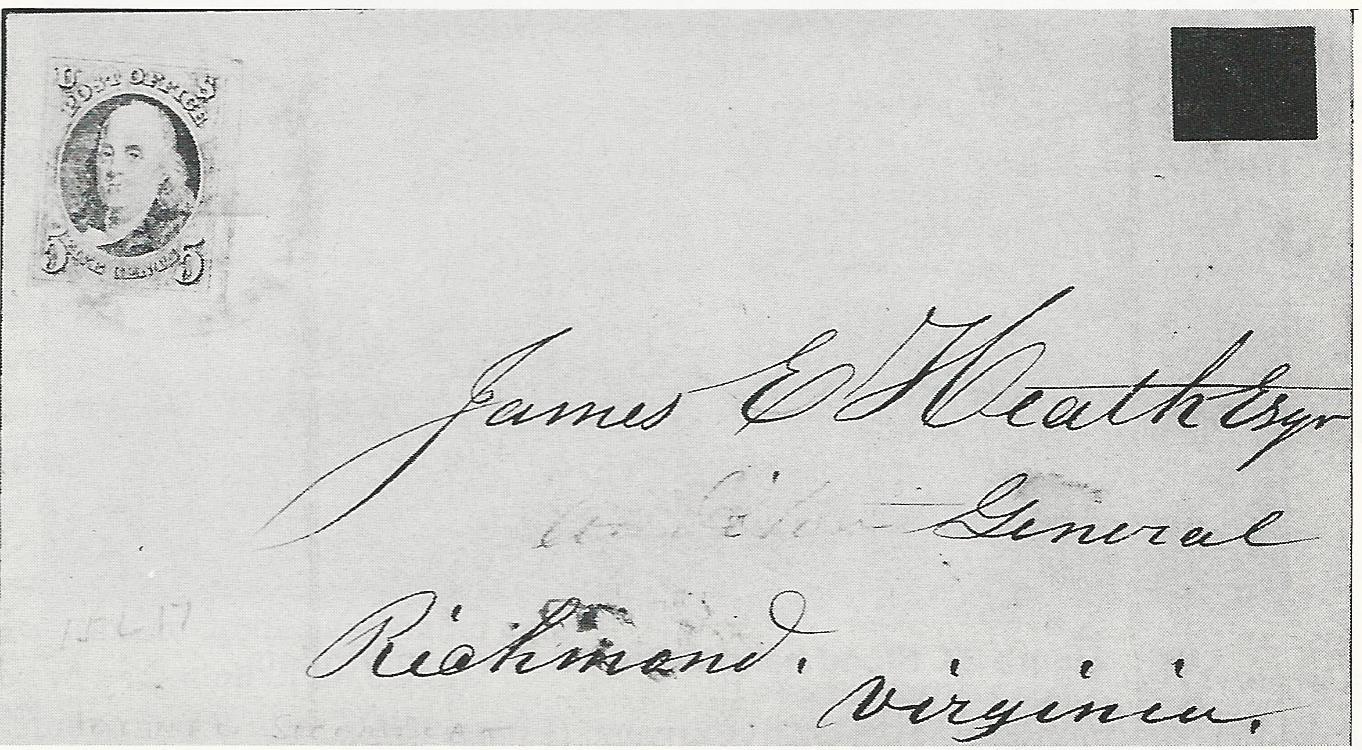 U S
POST OFFICE
5 FIVE CENTS 5
James E Heath Esqr
General
Richmond.
Virginia.